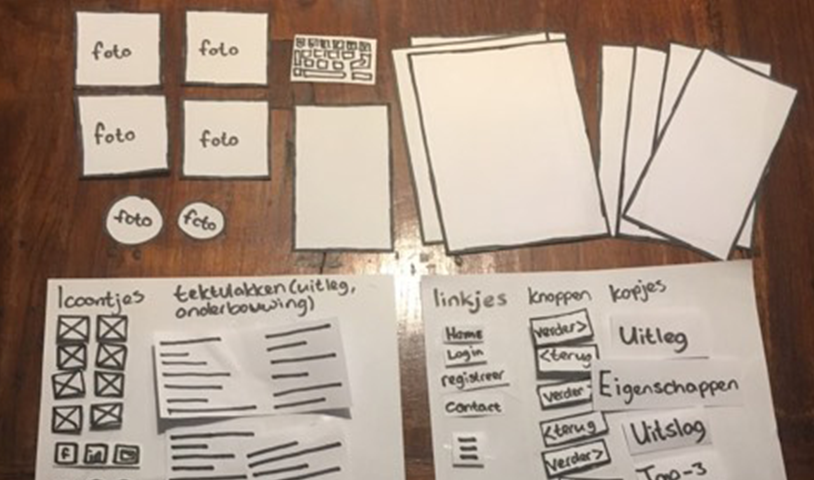 foto
foto
foto
foto
foto
foto
Icoontjes
tekstvlakken (uitleg,
onderbouwing)
f
in
linkjes
Home
Login
registreer
contact
knoppen
verder>
<terug
verder
<terug
verder>
kopjes
Uitleg
Eigenschappen
Uitslag
Top-3